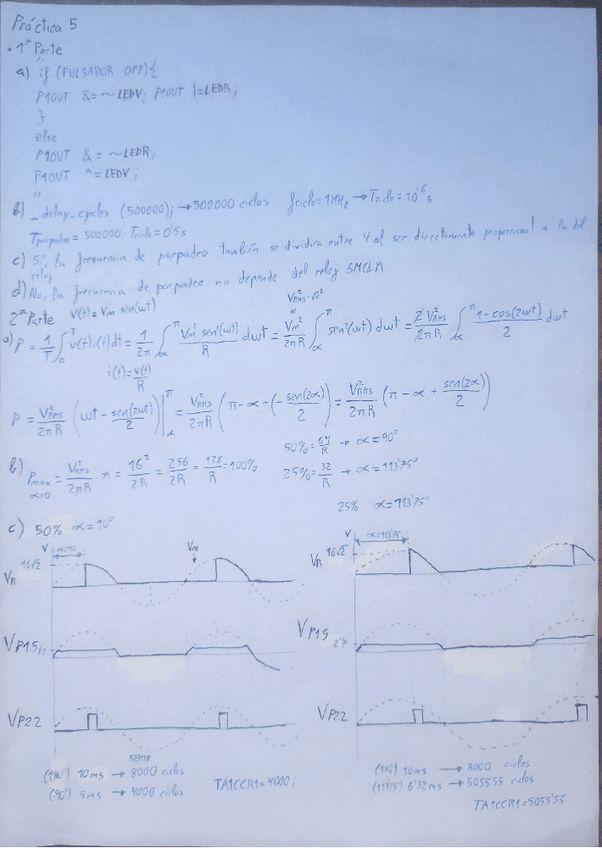 Práctica 5
• 1ª Parte
"
a) if (PULSADOR OFF){
P1OUT &= ~LEDV; P1OUT |= LEDR;
}
else
P1OUT &= ~LEDR;
P1OUT ^= LEDV;
"
b) _delay_cycles (500000); → 500000 ciclos fciclo = 1MHz → Tciclo = 10⁻⁶ s
Tparpadeo = 500000 · Tciclo = 0'5s
c) Sí, la frecuencia de parpadeo también se dividira entre 4 al ser directamente proporcional a la del reloj
d) No, la frecuencia de parpadeo no depende del reloj SMCLK
2ª Parte V(t) = Vm sen(wt)
a) P = 1/T ∫₀ᵀ v(t) i(t) dt = 1/2π ∫_α^π Vm² sen²(wt)/R dwt = Vm²/2πR ∫_α^π sen²(wt) dwt = 2 V²RMS/2πR ∫_α^π (1-cos(2wt))/2 dwt
i(t) = v(t)/R
P = V²RMS/2πR (wt - sen(2wt)/2)|_α^π = V²RMS/2πR (π - α - (-sen(2α)/2)) = V²RMS/2πR (π - α + sen(2α)/2)
b) Pmax α=0 = V²RMS/2πR · π = 16²/2R = 256/2R = 128/R = 100%
50% = 64/R → α = 90°
25% = 32/R → α = 113'75°
25% α = 113'75°
c) 50% α = 90°
V α=90 VIN
VR 16√2
VP1.5
VP2.2
(180°) 10ms → 8000 ciclos
(90°) 5ms → 4000 ciclos TA1CCR1 = 4000;
V α=113'75
VR 16√2
VP1.5
VP2.2
(180) 10ms → 8000 ciclos
(113'75°) 6'32ms → 5055'55 ciclos
TA1CCR1 = 5055'55